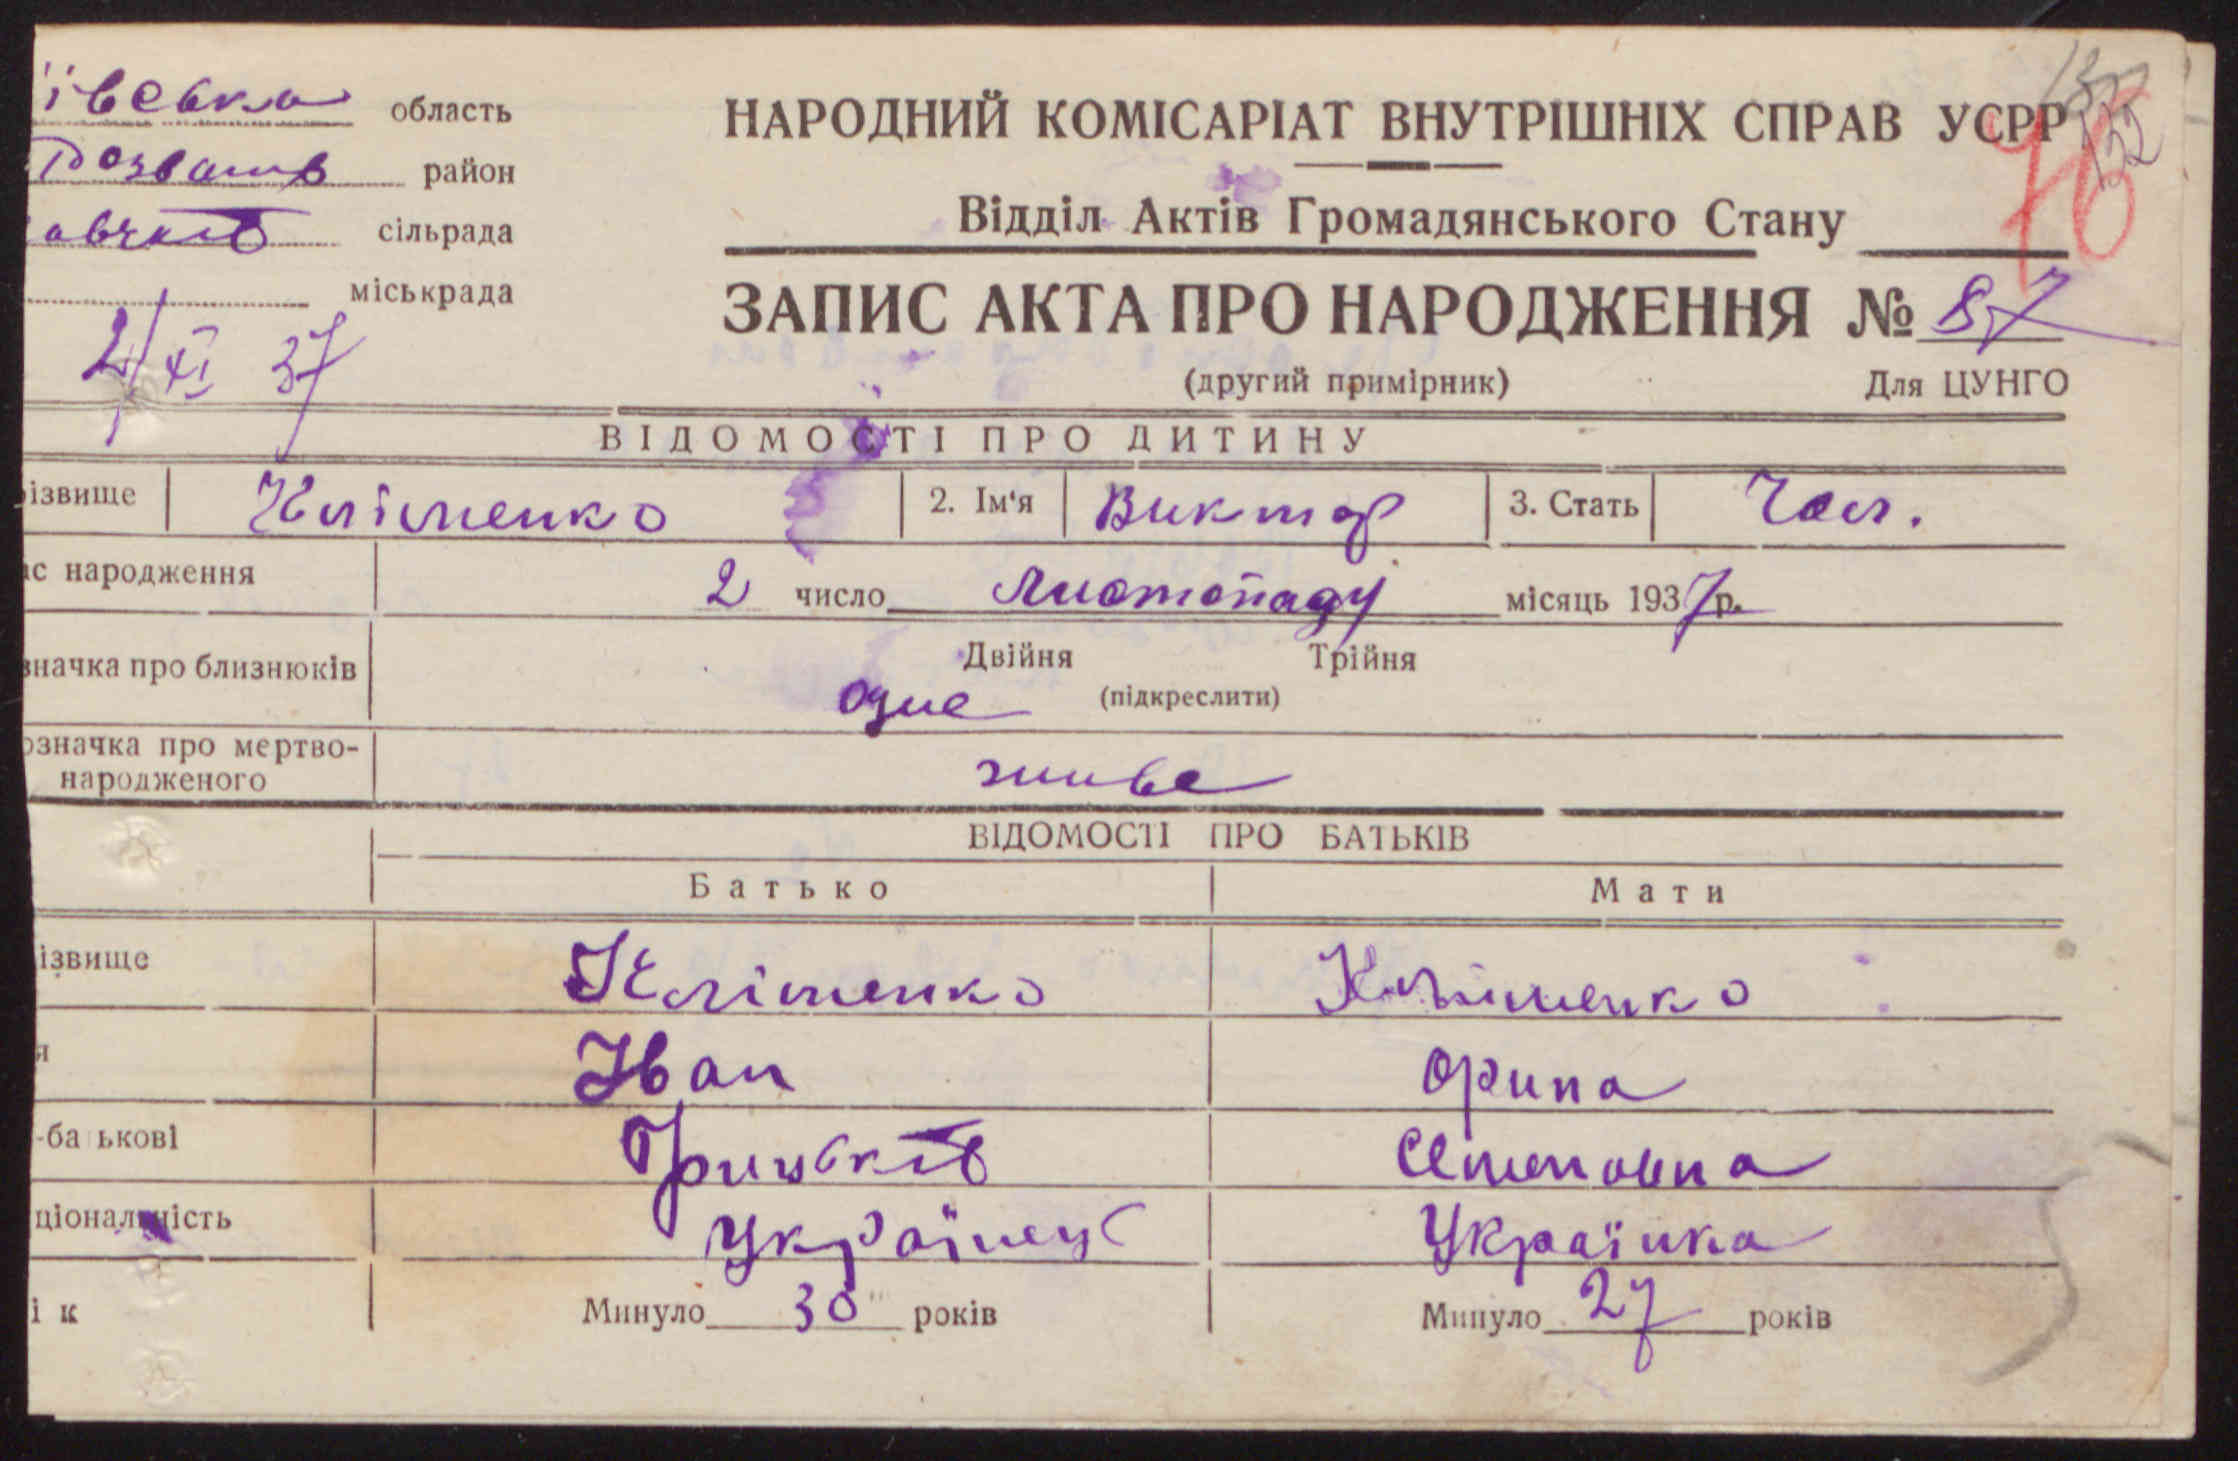 ївська область
Розваж район
авчків сільрада
міськрада
2/XI 37
НАРОДНИЙ КОМІСАРІАТ ВНУТРІШНІХ СПРАВ УСРР
132
78
Відділ Актів Громадянського Стану
ЗАПИС АКТА ПРО НАРОДЖЕННЯ № 87
(другий примірник) Для ЦУНГО
ВІДОМОСТІ ПРО ДИТИНУ
ізвище Кліменко 2. Ім'я Виктор 3. Стать Чол.
ас народження 2 число листопаду місяць 1937 р.
значка про близнюків Двійня Трійня
одне (підкреслити)
означка про мертво-
народженого живе
ВІДОМОСТІ ПРО БАТЬКІВ
Батько Мати
ізвище Кліменко Кліменко
я Іван Орина
-батькові Грицьків Семеновна
ціональність Українец Українка
ік Минуло 30 років Минуло 27 років